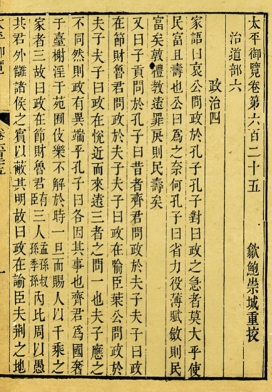 太平御覽卷第六百二十五
歙鮑崇城重挍
治道部六
政治四
家語曰哀公問政於孔子孔子對曰政之急者莫大乎使
民富且壽也公曰為之奈何孔子曰省力役薄賦斂則民
富矣敦禮教遠罪戾則民壽矣
又曰子貢問於孔子曰昔者齊君問政於夫子夫子曰政
在節財魯君問政於夫子夫子曰政在諭臣葉公問政於
夫子夫子曰政在悅近而來遠三者之問一也夫子應之
不同然則政有異端乎孔子曰各因其事也齊君為國奢
于臺榭淫于苑囿伎樂不解於時一旦而賜人以千乘之
家者三故曰政在節財魯君臣有三人孟孫叔孫季孫內比周以愚
共君外障諸侯之賓以蔽其明故曰政在諭臣夫荆之地